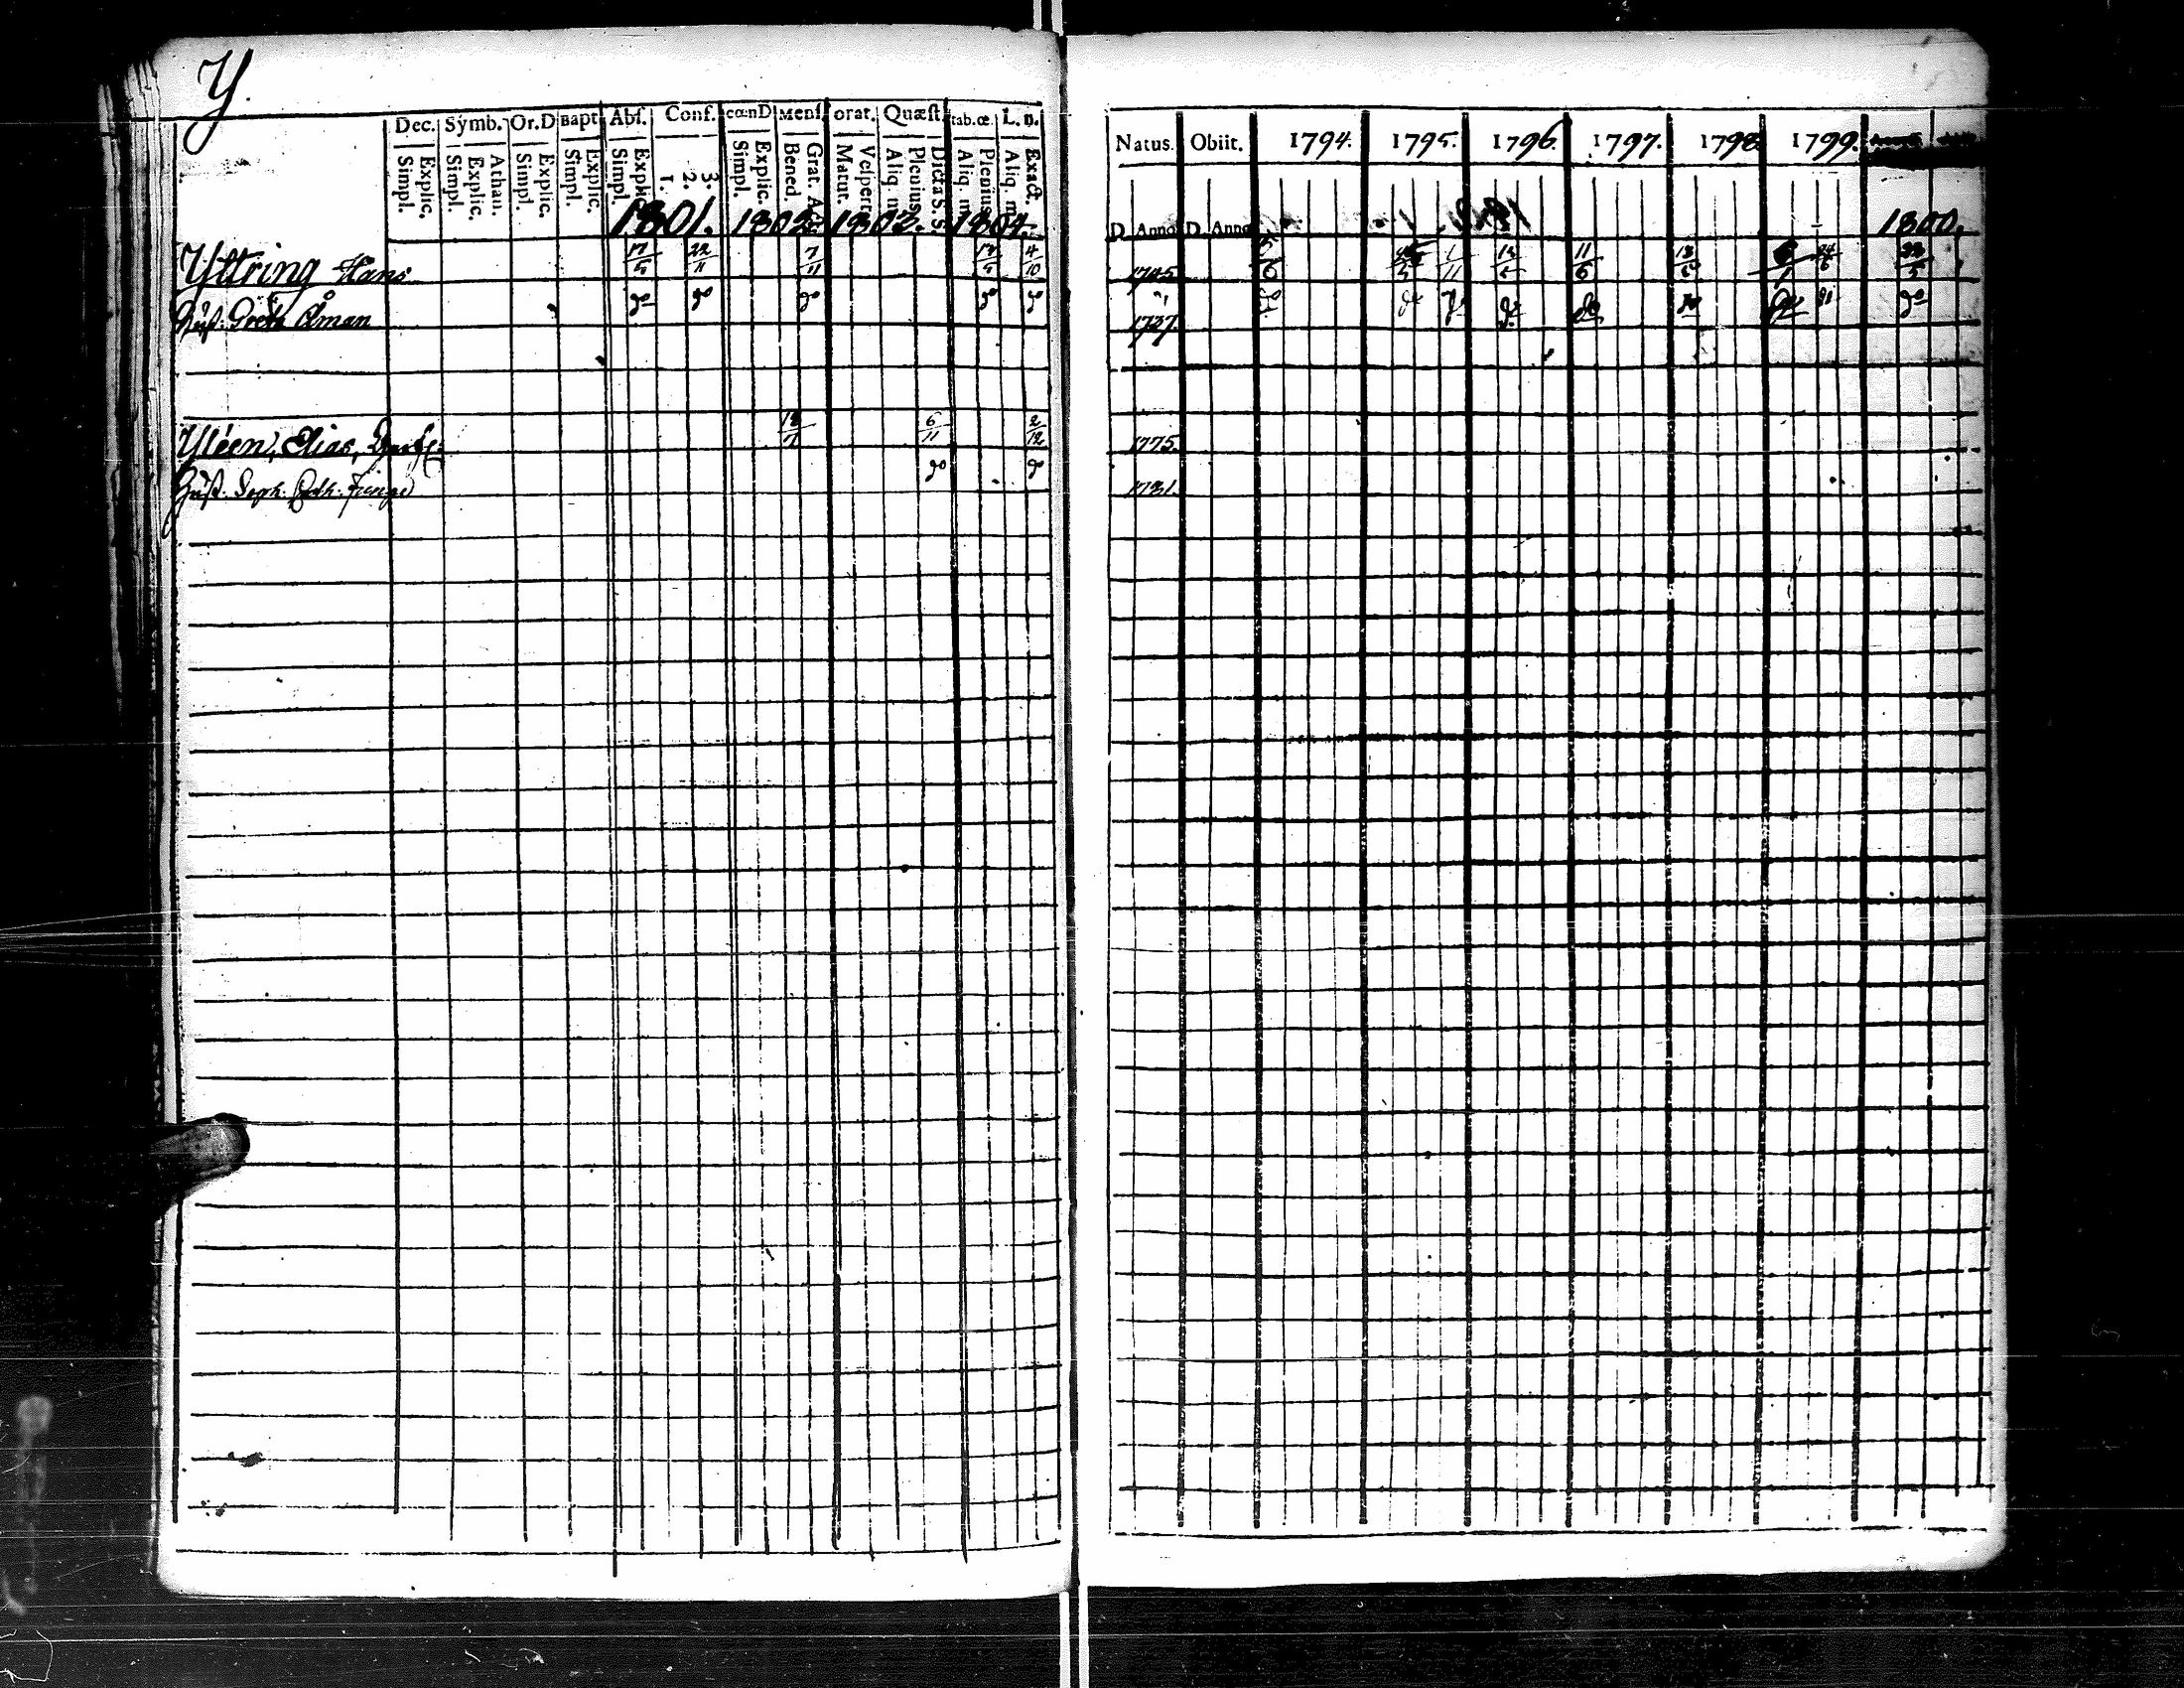 Y.
Dec. Symb. Or.D Bapt. Abſ. Conf. cœnD Menſ. orat. Quæſt. tab.œ. L. n.
Simpl. Explic. Simpl. Explic. Athan. Simpl. Explic. Simpl. Explic. Simpl. Explic. 1. 2. 3. Simpl. Explic. Bened. Grat. Act. Matut. Veſpert. Aliq. m. Plenius Dicta S.S. Aliq. m. Plenius Aliq. m. Exact.
1801. 1802. 1803. 1804.
Yttring Hans 17/5 22/11 7/11 17/5 4/10
Huſt. Greta Åman do do do do do
Yléen, Elias, 18/11 6/11 2/12
Huſt. Soph. Cath. do do
Natus. Obiit. 1794. 1795. 1796. 1797. 1798 1799.
D. Anno D. Anno 1800.
1745. 1/11 11/6
1737. do do do do do do do do
1775.
1781.